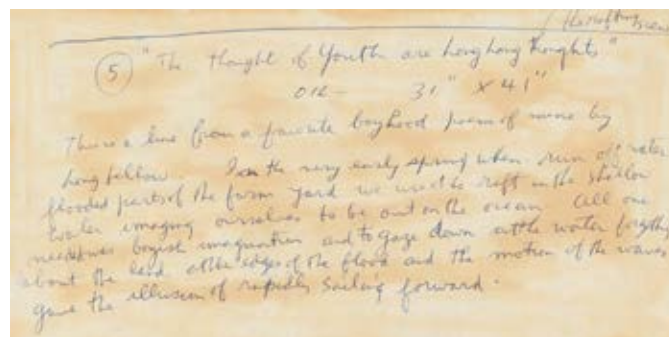 5 "The thought of Youth are long long thoughts"
OIL - 31" x 41"
This is a line from a favorite boyhood poem of mine by
Longfellow. In the very early spring when run off water
flooded parts of the farm yard we used to raft in the shallow
water imaging ourselves to be out on the ocean. All one
needed was boyish imagination and to gaze down at the water forgetting
about the land at the edges of the flood and the motion of the waves
gave the illusion of rapidly sailing forward.